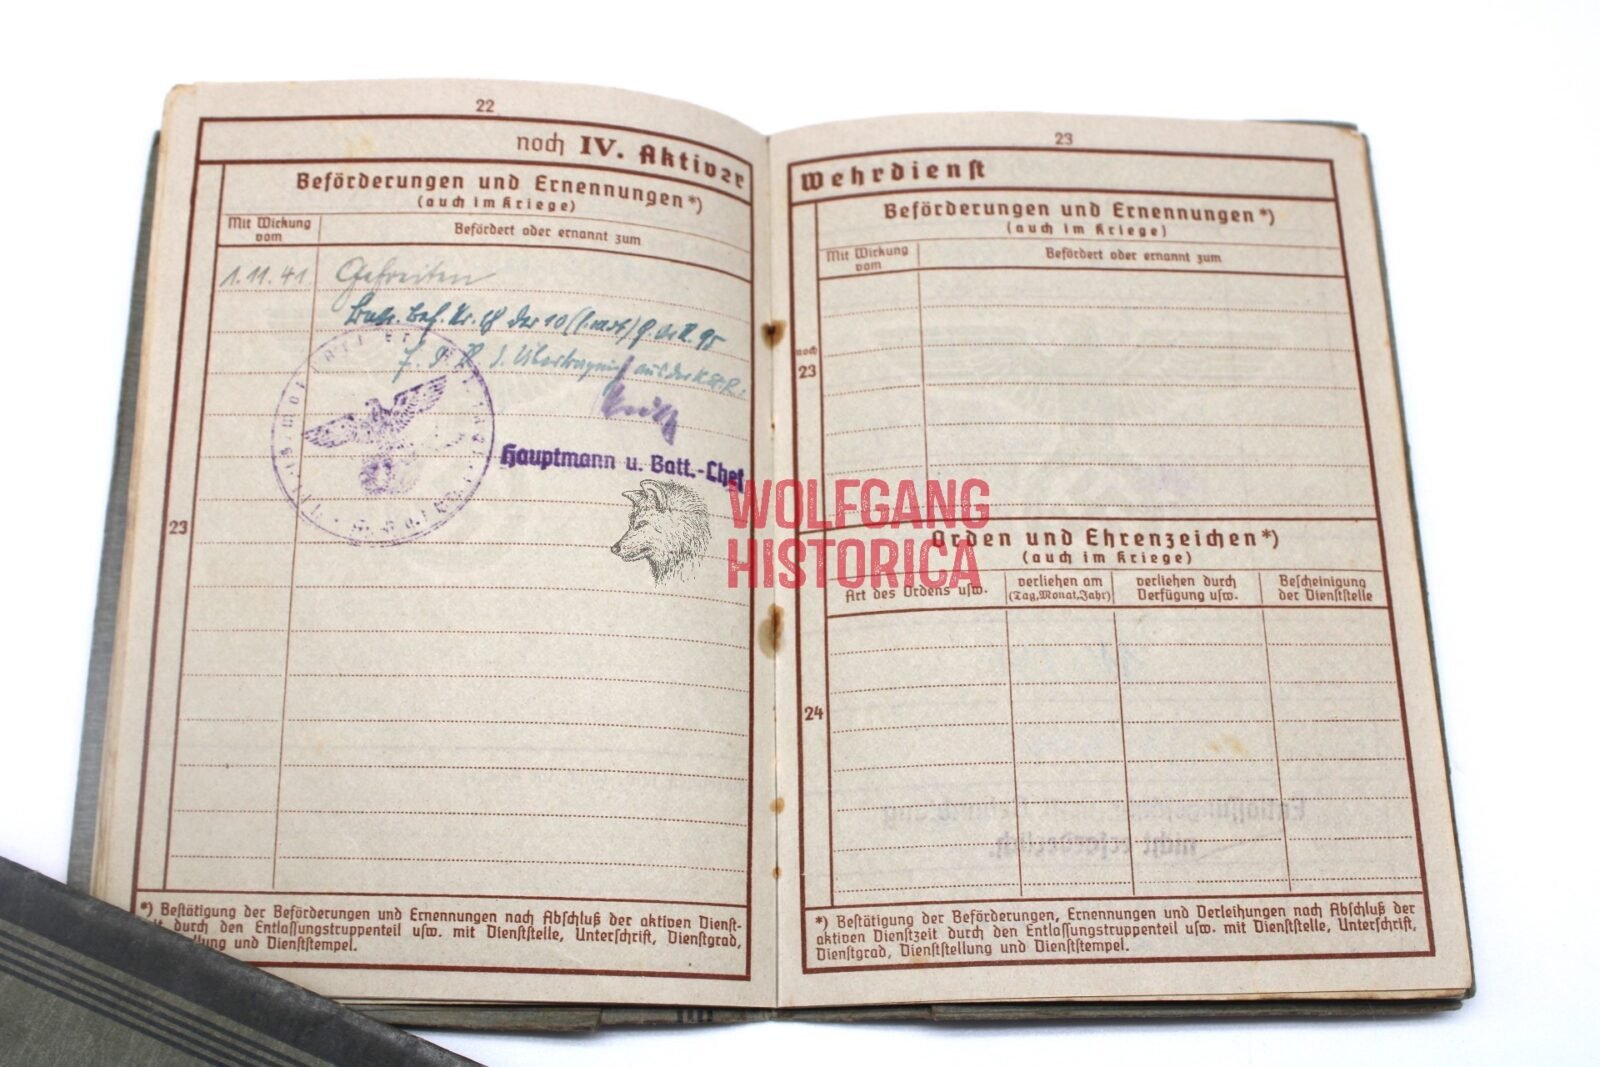 22
noch IV. Aktiver
Beförderungen und Ernennungen*)
(auch im Kriege)
Mit Wirkung
vom
Befördert oder ernannt zum
1.11.41 Gefreiten
der 10
Hauptmann u. Batt.-Chef
23
*) Bestätigung der Beförderungen und Ernennungen nach Abschluß der aktiven Dienst-
durch den Entlassungstruppenteil usw. mit Dienststelle, Unterschrift, Dienstgrad,
und Dienststempel.
23
Wehrdienst
Beförderungen und Ernennungen*)
(auch im Kriege)
Mit Wirkung
vom
Befördert oder ernannt zum
noch
23
WOLFGANG
HISTORICA
Orden und Ehrenzeichen*)
(auch im Kriege)
Art des Ordens usw.
verliehen am
(Tag, Monat, Jahr)
verliehen durch
Verfügung usw.
Bescheinigung
der Dienststelle
24
*) Bestätigung der Beförderungen, Ernennungen und Verleihungen nach Abschluß der
aktiven Dienstzeit durch den Entlassungstruppenteil usw. mit Dienststelle, Unterschrift,
Dienstgrad, Dienststellung und Dienststempel.